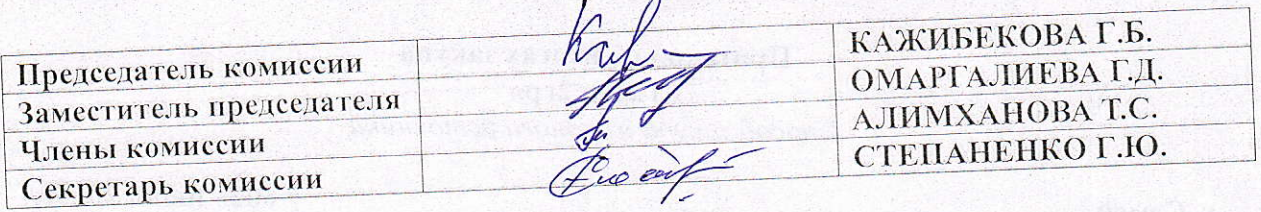 Председатель комиссии КАЖИБЕКОВА Г.Б.
Заместитель председателя ОМАРГАЛИЕВА Г.Д.
Члены комиссии АЛИМХАНОВА Т.С.
Секретарь комиссии СТЕПАНЕНКО Г.Ю.